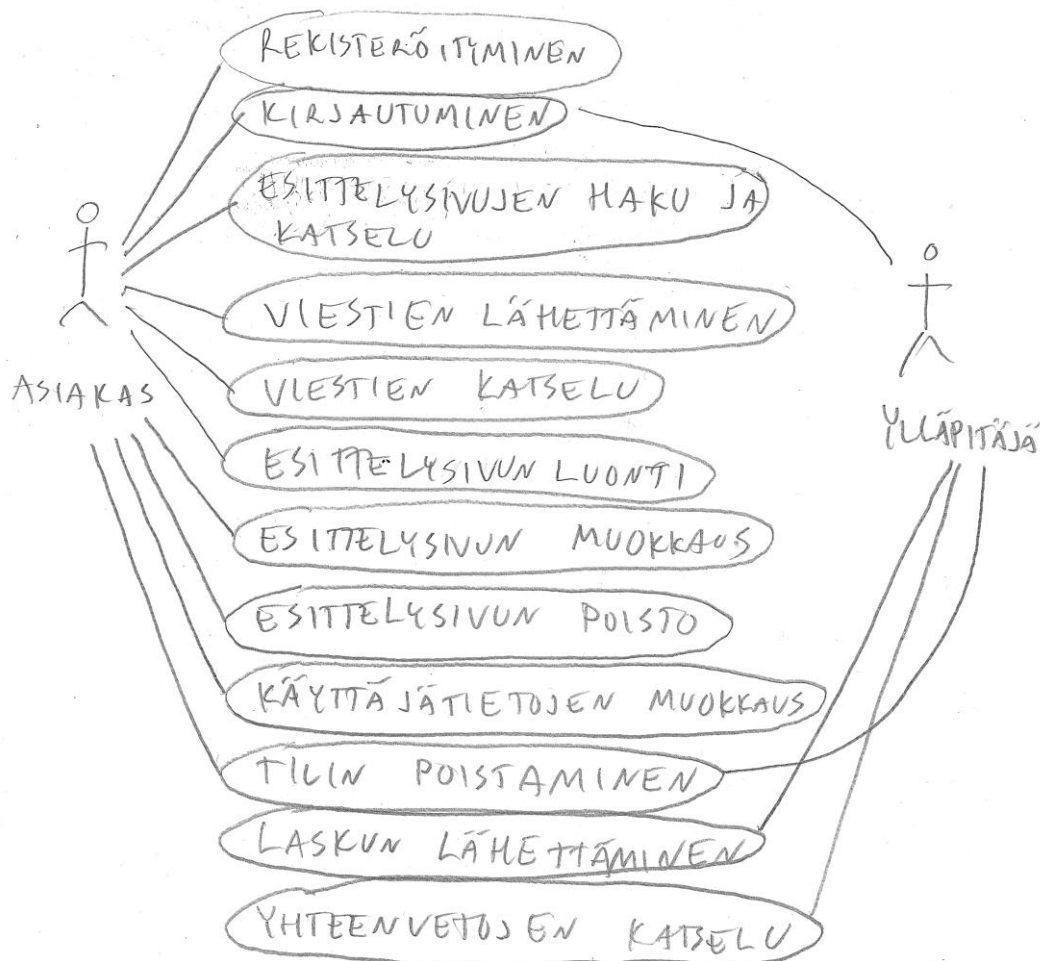 REKISTERÖITYMINEN
KIRJAUTUMINEN
ESITTELYSIVUJEN HAKU JA
KATSELU
VIESTIEN LÄHETTÄMINEN
ASIAKAS
VIESTIEN KATSELU
YLLÄPITÄJÄ
ESITTELYSIVUN LUONTI
ESITTELYSIVUN MUOKKAUS
ESITTELYSIVUN POISTO
KÄYTTÄJÄTIETOJEN MUOKKAUS
TILIN POISTAMINEN
LASKUN LÄHETTÄMINEN
YHTEENVETOJEN KATSELU